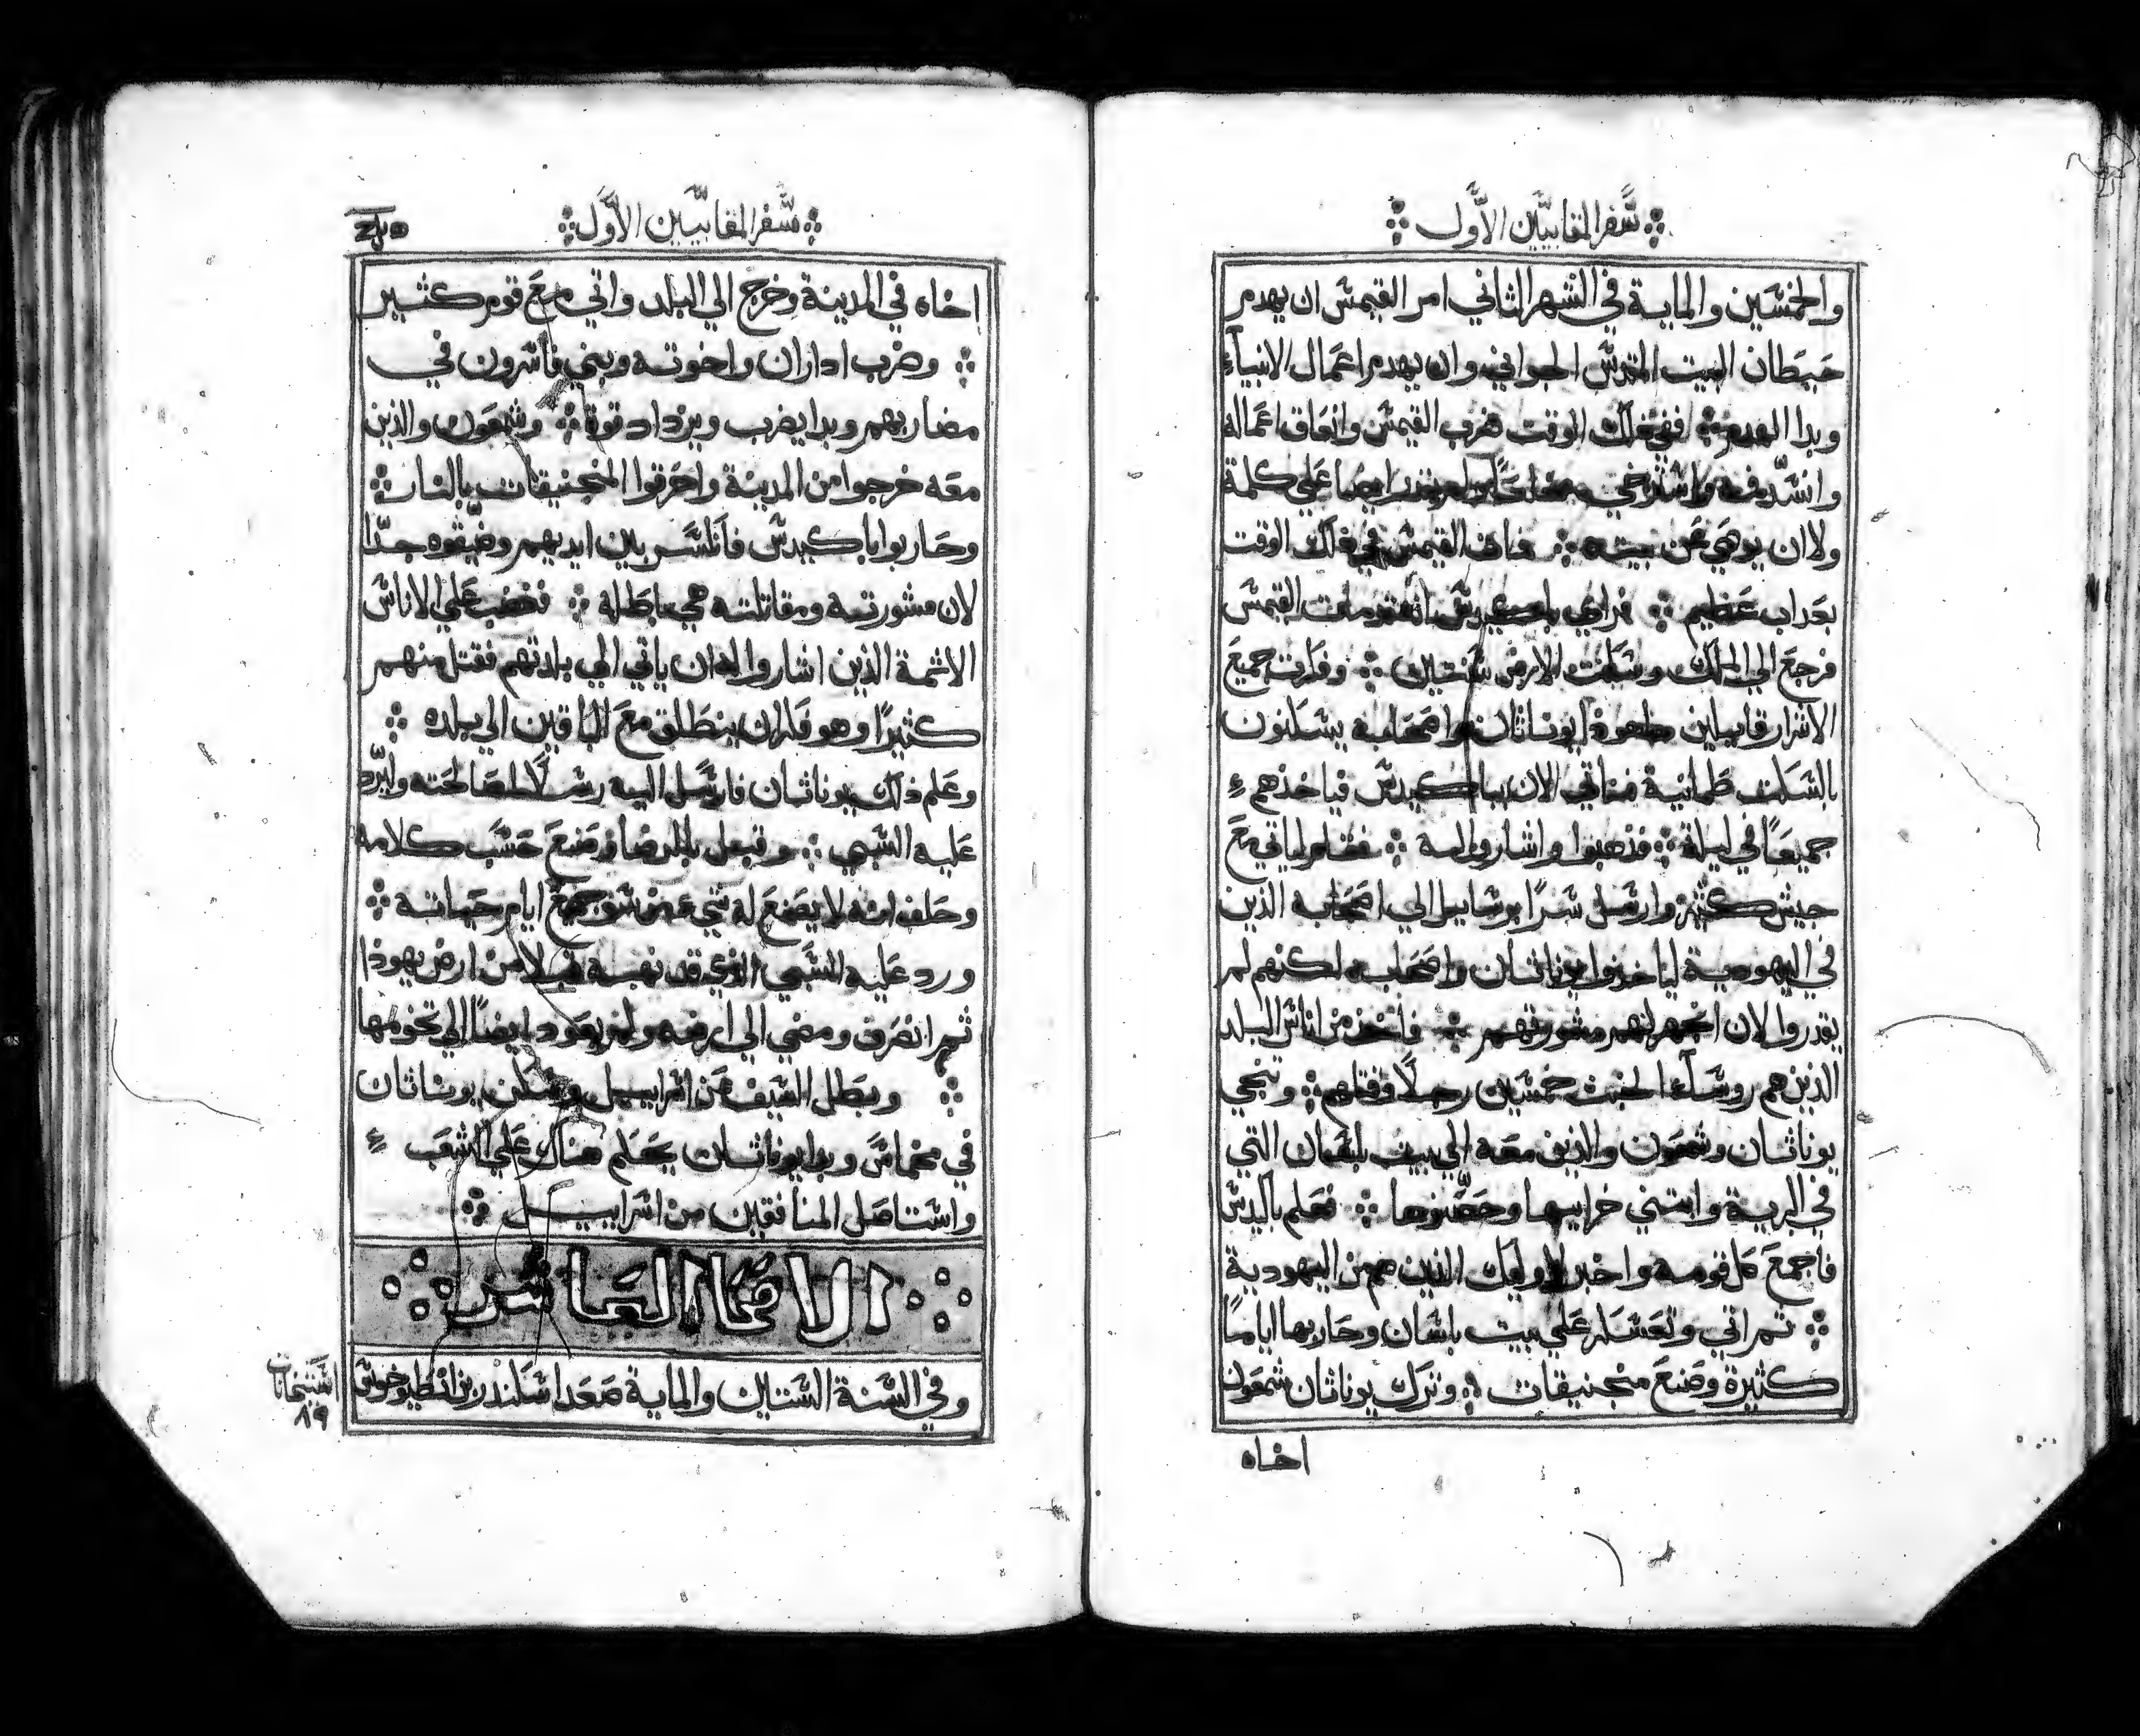 سفر المقابيين الاول
والخمسين والماية في الشهر الثاني امر القيمس ان يهدم
حيطان البيت المقدس الجواني وان يهدم اعمال الانبياء
وبدا الهدم ففي ذلك الوقت ضرب القيمس وانعاق اعماله
وانسد فمه واسترخي ولم يقدر ايضا علي كلمة
ولا ان يوصي عن بيته فمات القيمس في ذلك الوقت
بعداب عظيم فراي باكيدس انه قد مات القيمس
فرجع الي الملك وسكتت الارض سنتين وفكرت جميع
الاشرار قايلين هاهوذا يوناثان واصحابه يسكنون
بالسكت طمانية فناتي الان بباكيدس فياخذهم
جميعا في ليلة فذهبوا واشاروا له فقام لياتي مع
جيش كثير وارسل سرا برسايل الي اصحابه الذين
في اليهودية لياخذوا يوناثان واصحابه لكنهم لم
يقدروا لان اجهر لهم مشورتهم فاخذ من اناس البلد
الذين هم روساء الخبث خمسين رجلا وقتلهم وتنحي
يوناثان وشمعون والذين معه الي بيت بلسان التي
في البرية وابتني خرابيها وحصنوها فعلم باكيدس
فاجمع كل قومه واخبر لاوليك الذين هم من اليهودية
ثم اتي وتعسكر علي بيت باسان وحاربها اياما
كثيرة وصنع منجنيقات وترك يوناثان شمعون
اخاه
سفر المقابيين الاول
اخاه في المدينة وخرج الي البلد واتي مع قوم كثير
وضرب اداران واخوته وبني فاسرون في
مضاربهم وبدا يضرب ويزداد قوة وشمعون والذين
معه خرجوا من المدينة واحرقوا المنجنيقات بالنار
وحاربوا باكيدس فانكسر بين ايديهم وضيقوه جدا
لان مشورته ومقاتلته هي باطلة فغضب علي الاناس
الاثمة الذين اشاروا له ان ياتي الي بلدتهم فقتل منهم
كثيرا وهو فكر ان ينطلق مع الباقين الي بلده
وعلم ذلك يوناثان فارسل اليه رسلا لمصالحته وليرد
عليه السبي وقبل بالرضا وصنع حسب كلامه
وحلف انه لا يصنع له شي من سو جميع ايام حياته
ورد عليه السبي الذي قد نهبه قبلا من ارض يهوذا
ثم انصرف ومضي الي ارضه ولم يعود ايضا الي تخومها
وبطل السيف من اسراييل وسكن يوناثان
في مخماس وبدا يوناثان يحكم هناك علي الشعب
واستاصل المنافقين من اسراييل
الاصحاح العاشر
وفي السنة الستين والماية صعد اسكندر بن انطيوخوس